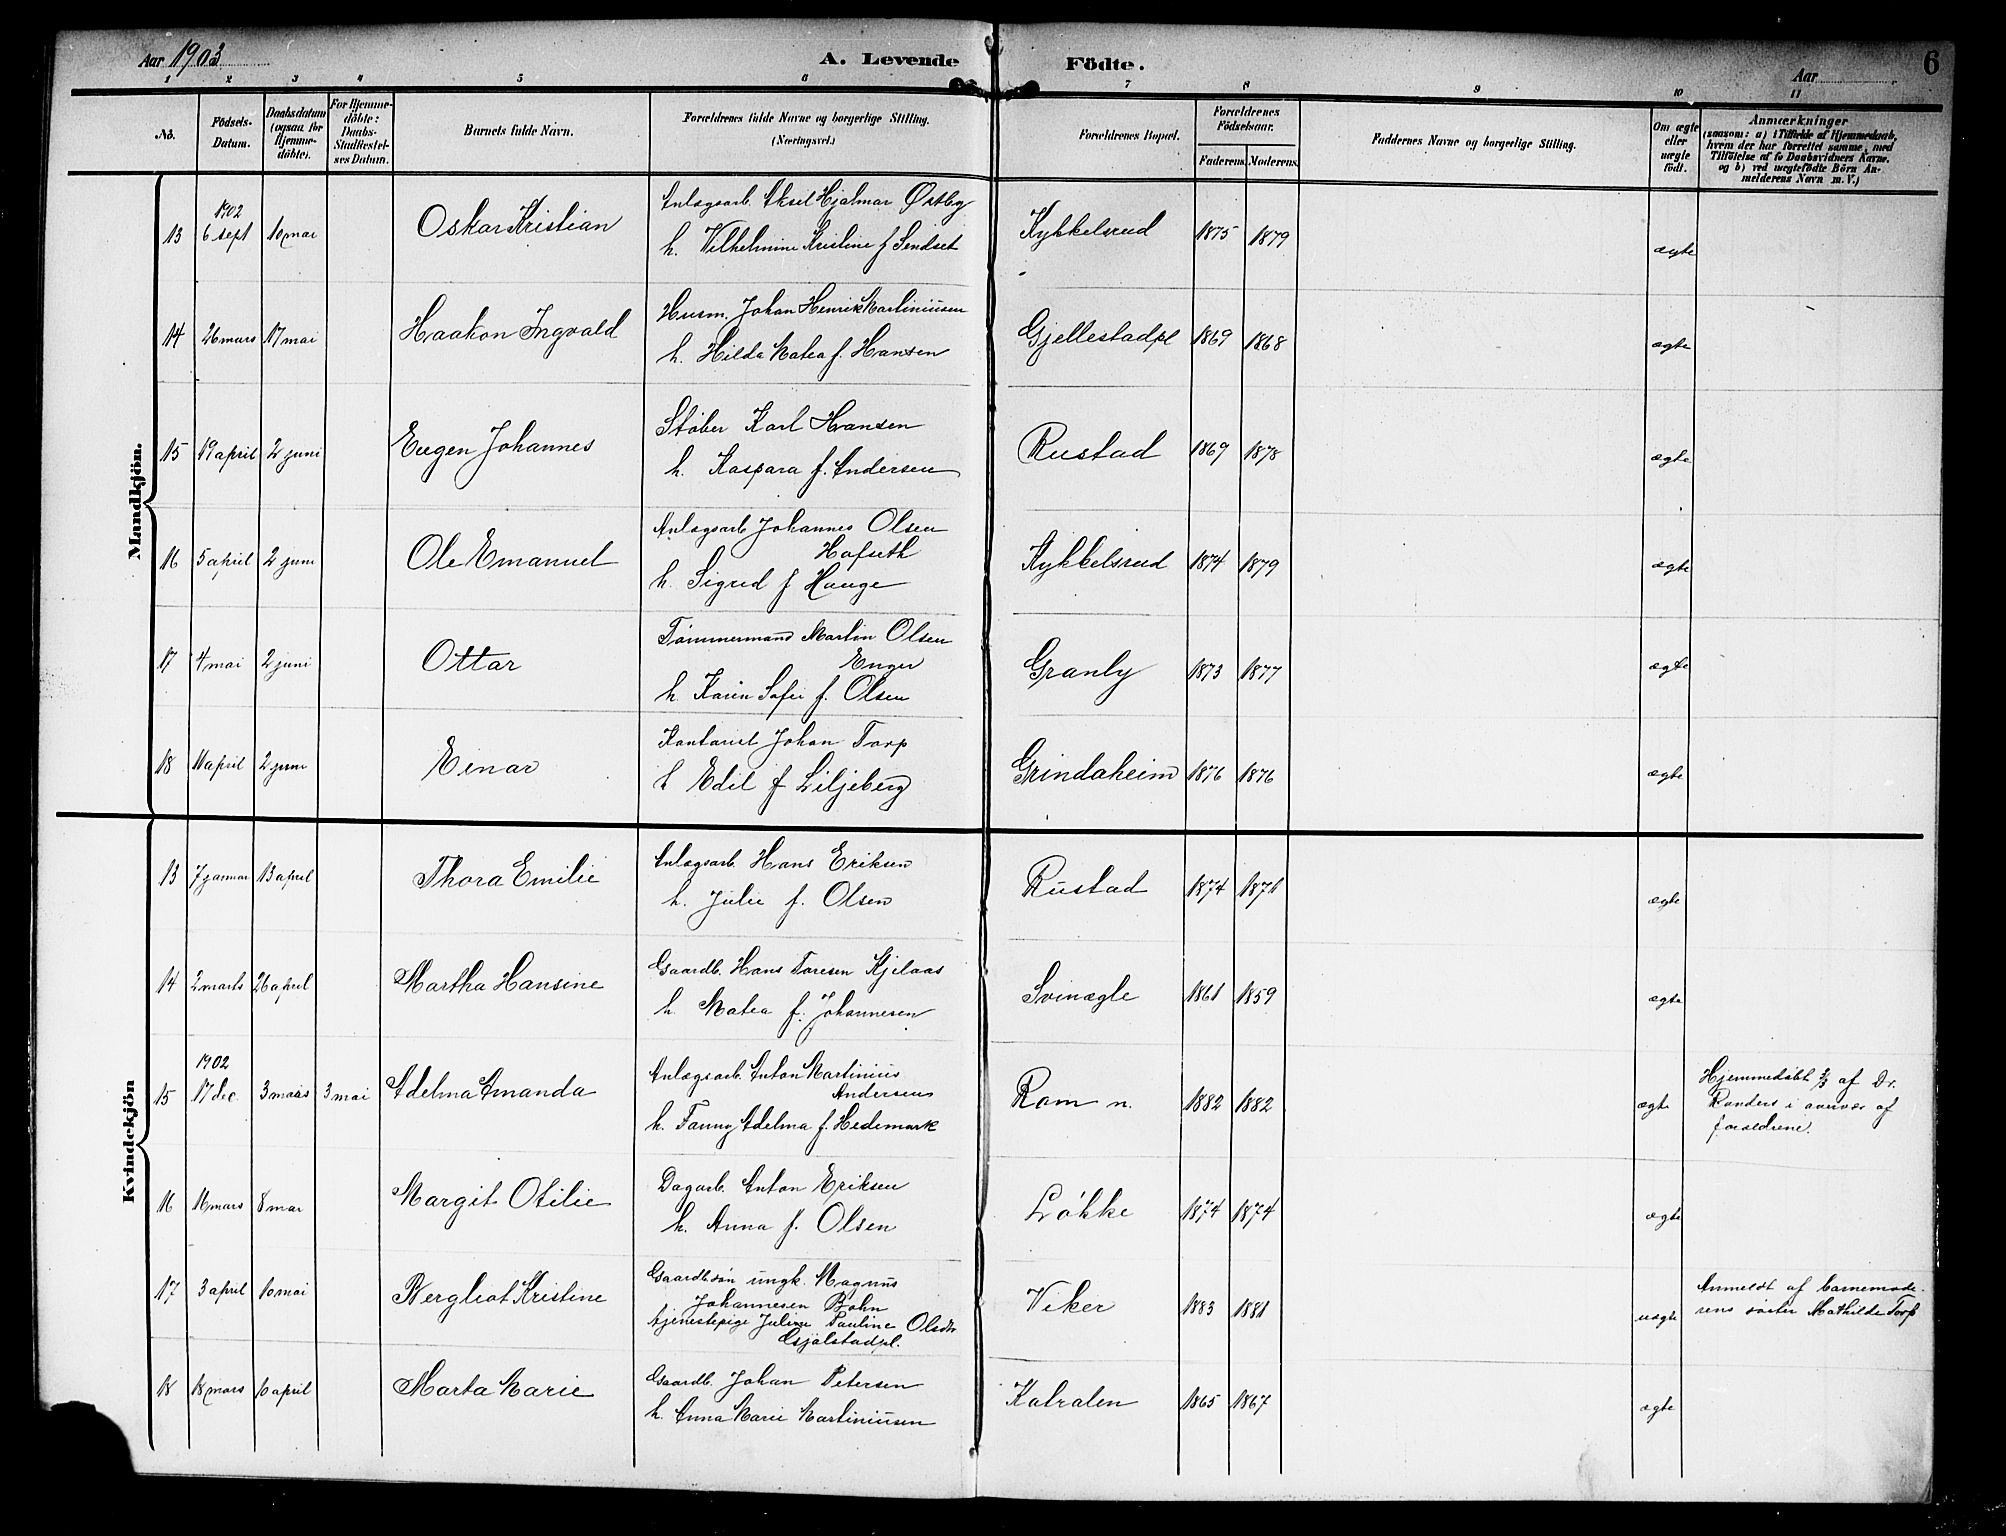 Aar 1903 A. Levende Födte. Aar 6
1 2 3 4 5 6 7 8 9 10 11
No. Födsels-Datum. Daabsdatum (ogsaa for Hjemme-döbte). For Hjemme-döbte: Daabs-Stadfæstel-ses Datum. Barnets fulde Navn. Forældrenes fulde Navne og borgerlige Stilling. (Næringsvei.) Forældrenes Bopæl. Forældrenes Födselsaar. Faderens. Moderens. Faddernes Navne og borgerlige Stilling. Om ægte eller uægte födt. Anmærkninger (saasom: a) i Tilfælde af Hjemmedaab, hvem der har forrettet samme, med Tilföielse af to Daabsvidners Navne. og b) ved uægtefödte Börn An-melderens Navn m. V.)
Mandkjön.
13 1902 6 sept 10 mai Oskar Kristian Anlægsarb. Aksel Hjalmar Østby
h. Vilhelmine Kristine f Sendset Kykkelsrud 1875 1879 ægte
14 26 mars 17 mai Haakon Ingvald Husm. Johan Henrik Martiniussen
h. Hilda Matea f. Hansen Gjellestadpl 1869 1868 ægte
15 19 april 2 juni Eugen Johannes Støber Karl Hansen
h. Kaspara f. Andersen Rustad 1869 1878 ægte
16 5 april 2 juni Ole Emanuel Anlægsarb Johannes Olsen
Hofseth
h. Sigrid f Hauge Kykkelsrud 1874 1879 ægte
17 4 mai 2 juni Ottar Tømmermand Martin Olsen
Enger
h. Karin Sofie f. Olsen Granly 1873 1877 ægte
18 11 april 2 juni Einar Kontorist Johan Torp
h Edil f Liljeberg Grindaheim 1876 1876 ægte
Kvindekjön
13 7 januar 13 april Thora Emilie Anlægsarb. Hans Eriksen
h. Julie f. Olsen Rustad 1874 1871 ægte
14 2 marts 26 april Martha Hansine Gaardb. Hans Toresen Kjelaas
h. Matea f. Johannesen Svinægle 1861 1859 ægte
15 1902 17 dec. 3 mars 3 mai Adelma Amanda Anlægsarb. Anton Martinius
Andersen
h. Fanny Adelma f. Hedemark Rom n. 1882 1882 ægte Hjemmedøbt 3/3 af Dr.
Randers i overvær af
forældrene.
16 16 mars 8 mai Margit Otilie Dagarb. Anton Eriksen
h. Anna f. Olsen Løkke 1874 1874 ægte
17 3 april 10 mai Bergliot Kristine Gaardb.søn ungk. Magnus
Johannesen Bohn
tjenestepige Juline Pauline Olsdr
Gjølstadpl. Viker 1883 1881 uægte Anmeldt af barnemode-
rens søster Mathilde Torp
18 18 mars 10 april Marta Marie Gaardb. Johan Petersen
h. Anna Marie Martiniusen Katralen 1865 1867 ægte